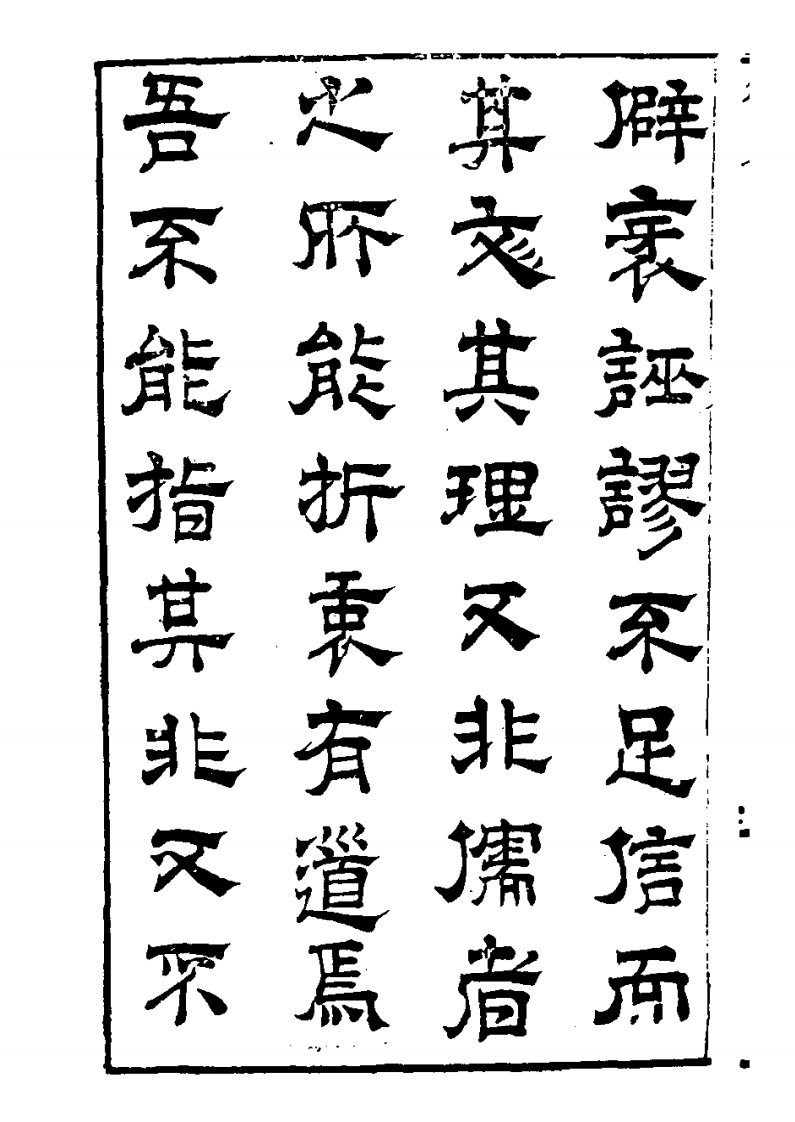 僻衺誣謬不足信而
其彣其理又非儒者
之所能折衷有道焉
吾不能指其非又不